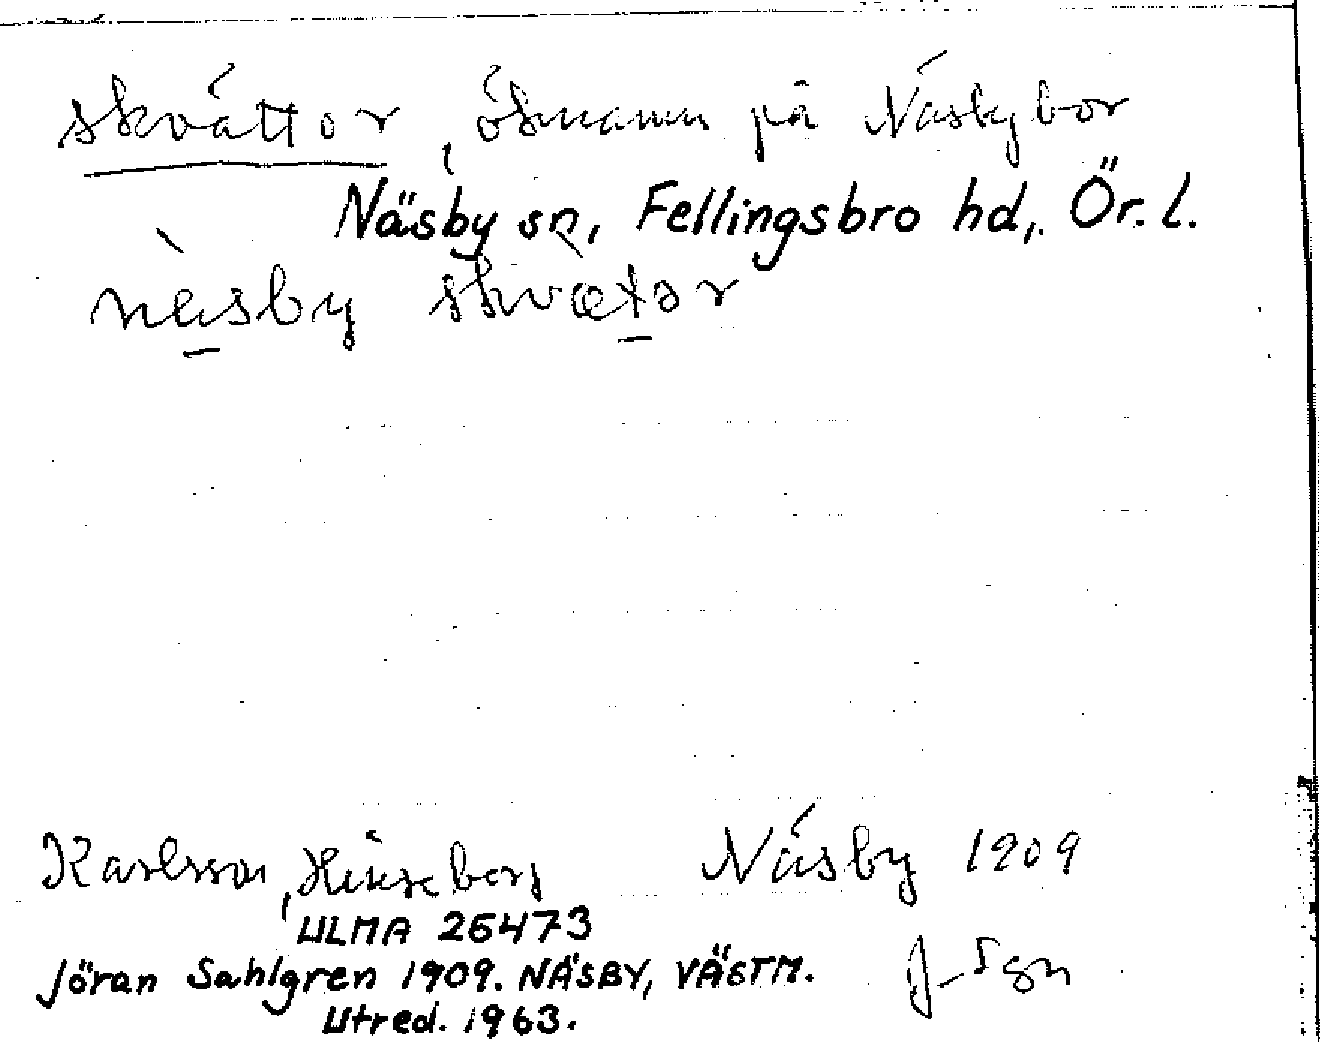 skvättor, öknamn på Näsbybor
Näsby sn, Fellingsbro hd,. Ör. l.
näsby skvætor
Karlsson, Näsby 1909
ULMA 26473
Jöran Sahlgren 1909. NÄSBY, VÄSTM. J. Sgn
Utred. 1963.